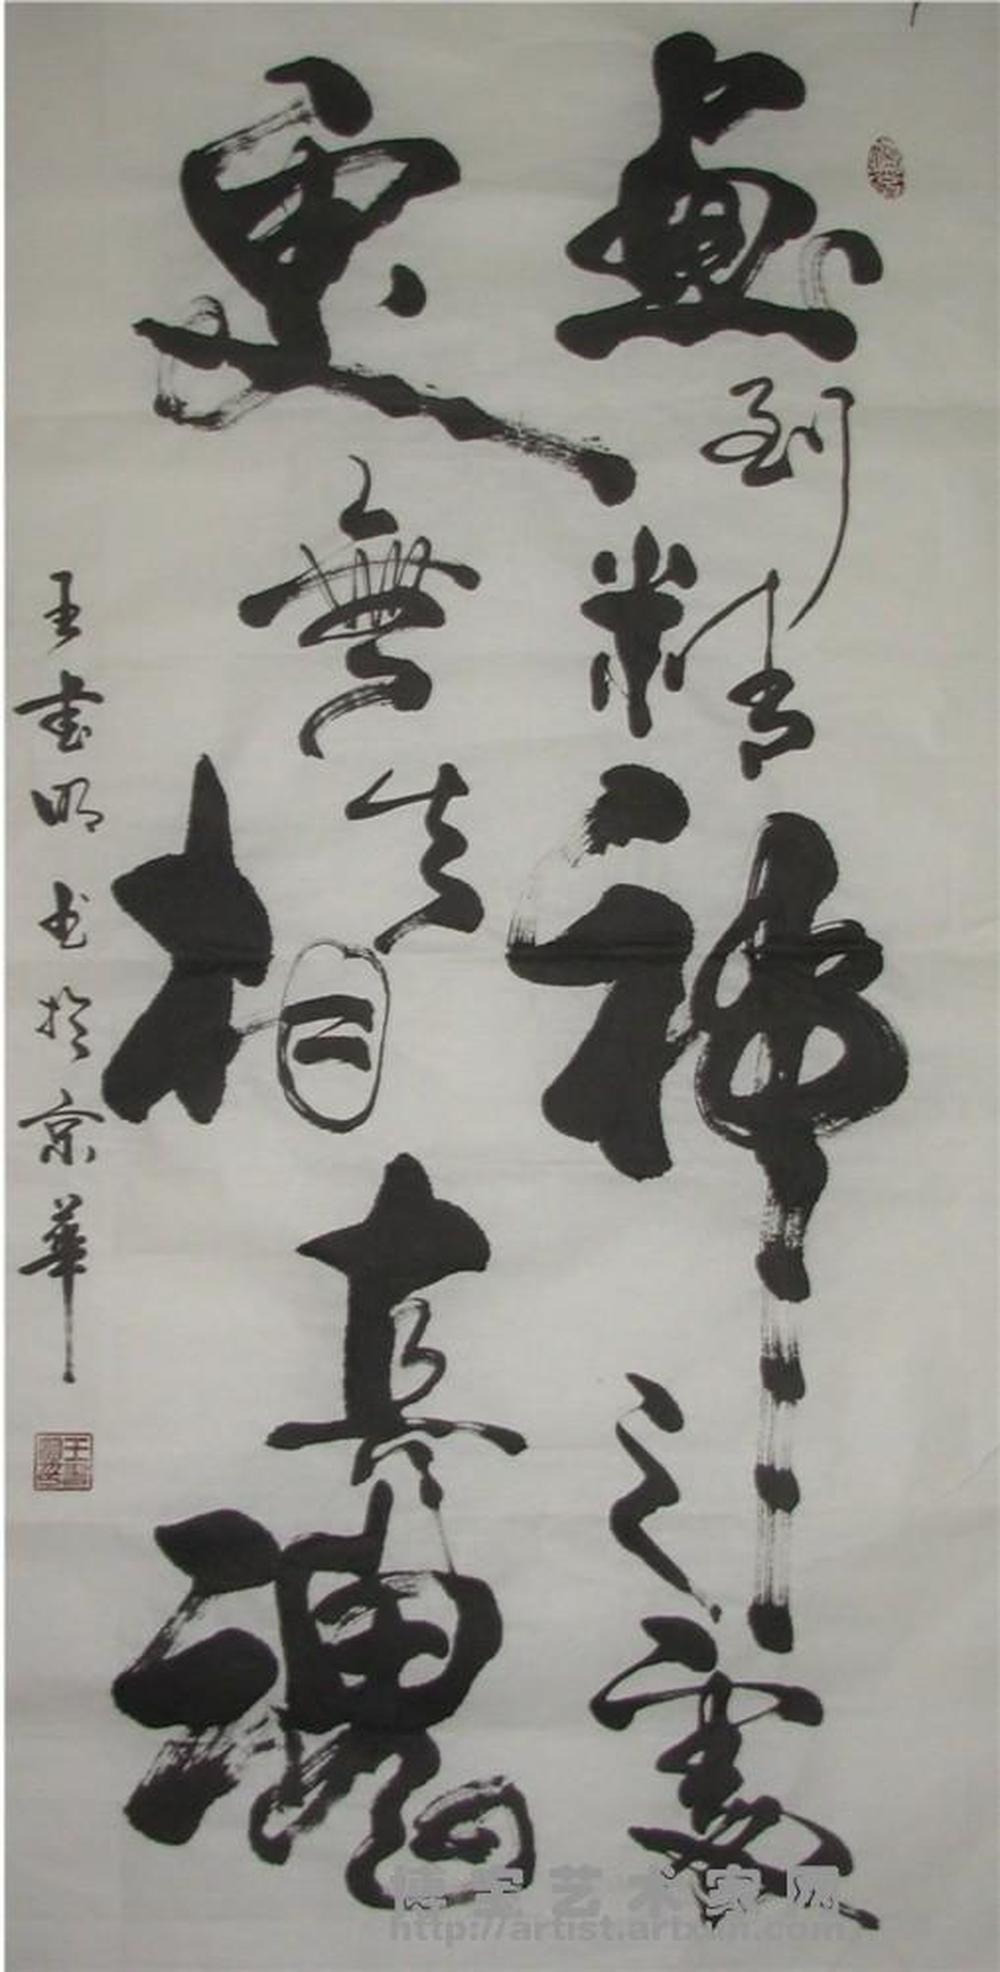 畫到精神之處
更無失相真魂
王書明书於京華
博宝艺术家网
http://artist.artxun.com